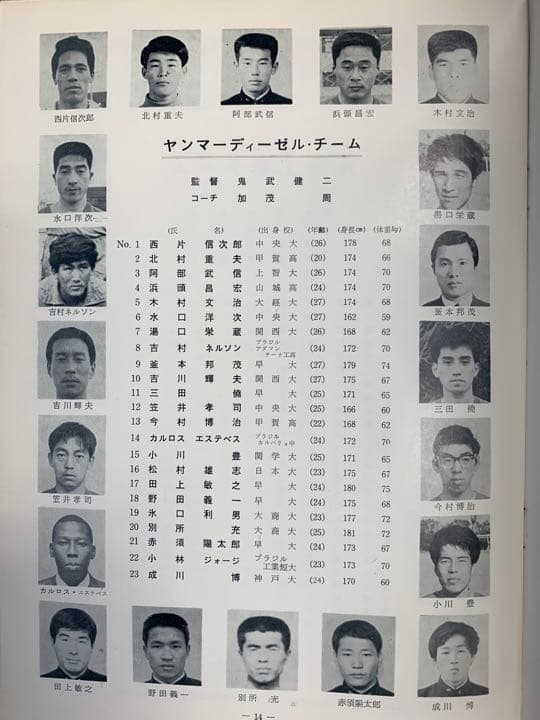 西片信次郎
北村重夫
阿部武信
浜頭昌宏
木村文治
ヤンマーディーゼル・チーム
監督 鬼武健二
コーチ 加茂周
水口洋次
湯口栄蔵
吉村ネルソン
釜本邦茂
吉川輝夫
三田暁
笠井孝司
今村博治
カルロス・エステベス
小川豊
(氏名) (出身校) (年齢) (身長cm) (体重kg)
No. 1 西片信次郎 中央大 (26) 178 68
2 北村重夫 甲賀高 (20) 174 66
3 阿部武信 上智大 (26) 174 70
4 浜頭昌宏 山城高 (24) 174 70
5 木村文治 大経大 (27) 174 68
6 水口洋次 中央大 (27) 162 59
7 湯口栄蔵 関西大 (26) 168 62
8 吉村ネルソン ブラジルアダマンチーナ工高 (24) 172 70
9 釜本邦茂 早大 (27) 179 74
10 吉川輝夫 関西大 (27) 175 67
11 三田 早大 (25) 171 65
12 笠井孝司 中央大 (25) 166 60
13 今村博治 甲賀高 (22) 168 62
14 カルロス エステベス ブラジルカルバリョ中 (24) 172 70
15 小川豊 関学大 (25) 171 65
16 松村雄志 日本大 (23) 175 67
17 田上敏之 早大 (24) 180 75
18 野田義一 早大 (24) 175 68
19 氷口利男 大商大 (23) 177 72
20 別所充 大商大 (25) 181 72
21 赤須陽太郎 早大 (24) 173 67
22 小林ジョージ ブラジル工業短大 (23) 173 70
23 成川博 神戸大 (24) 170 60
田上敏之
野田義一
別所充
赤須陽太郎
成川博
— 14 —